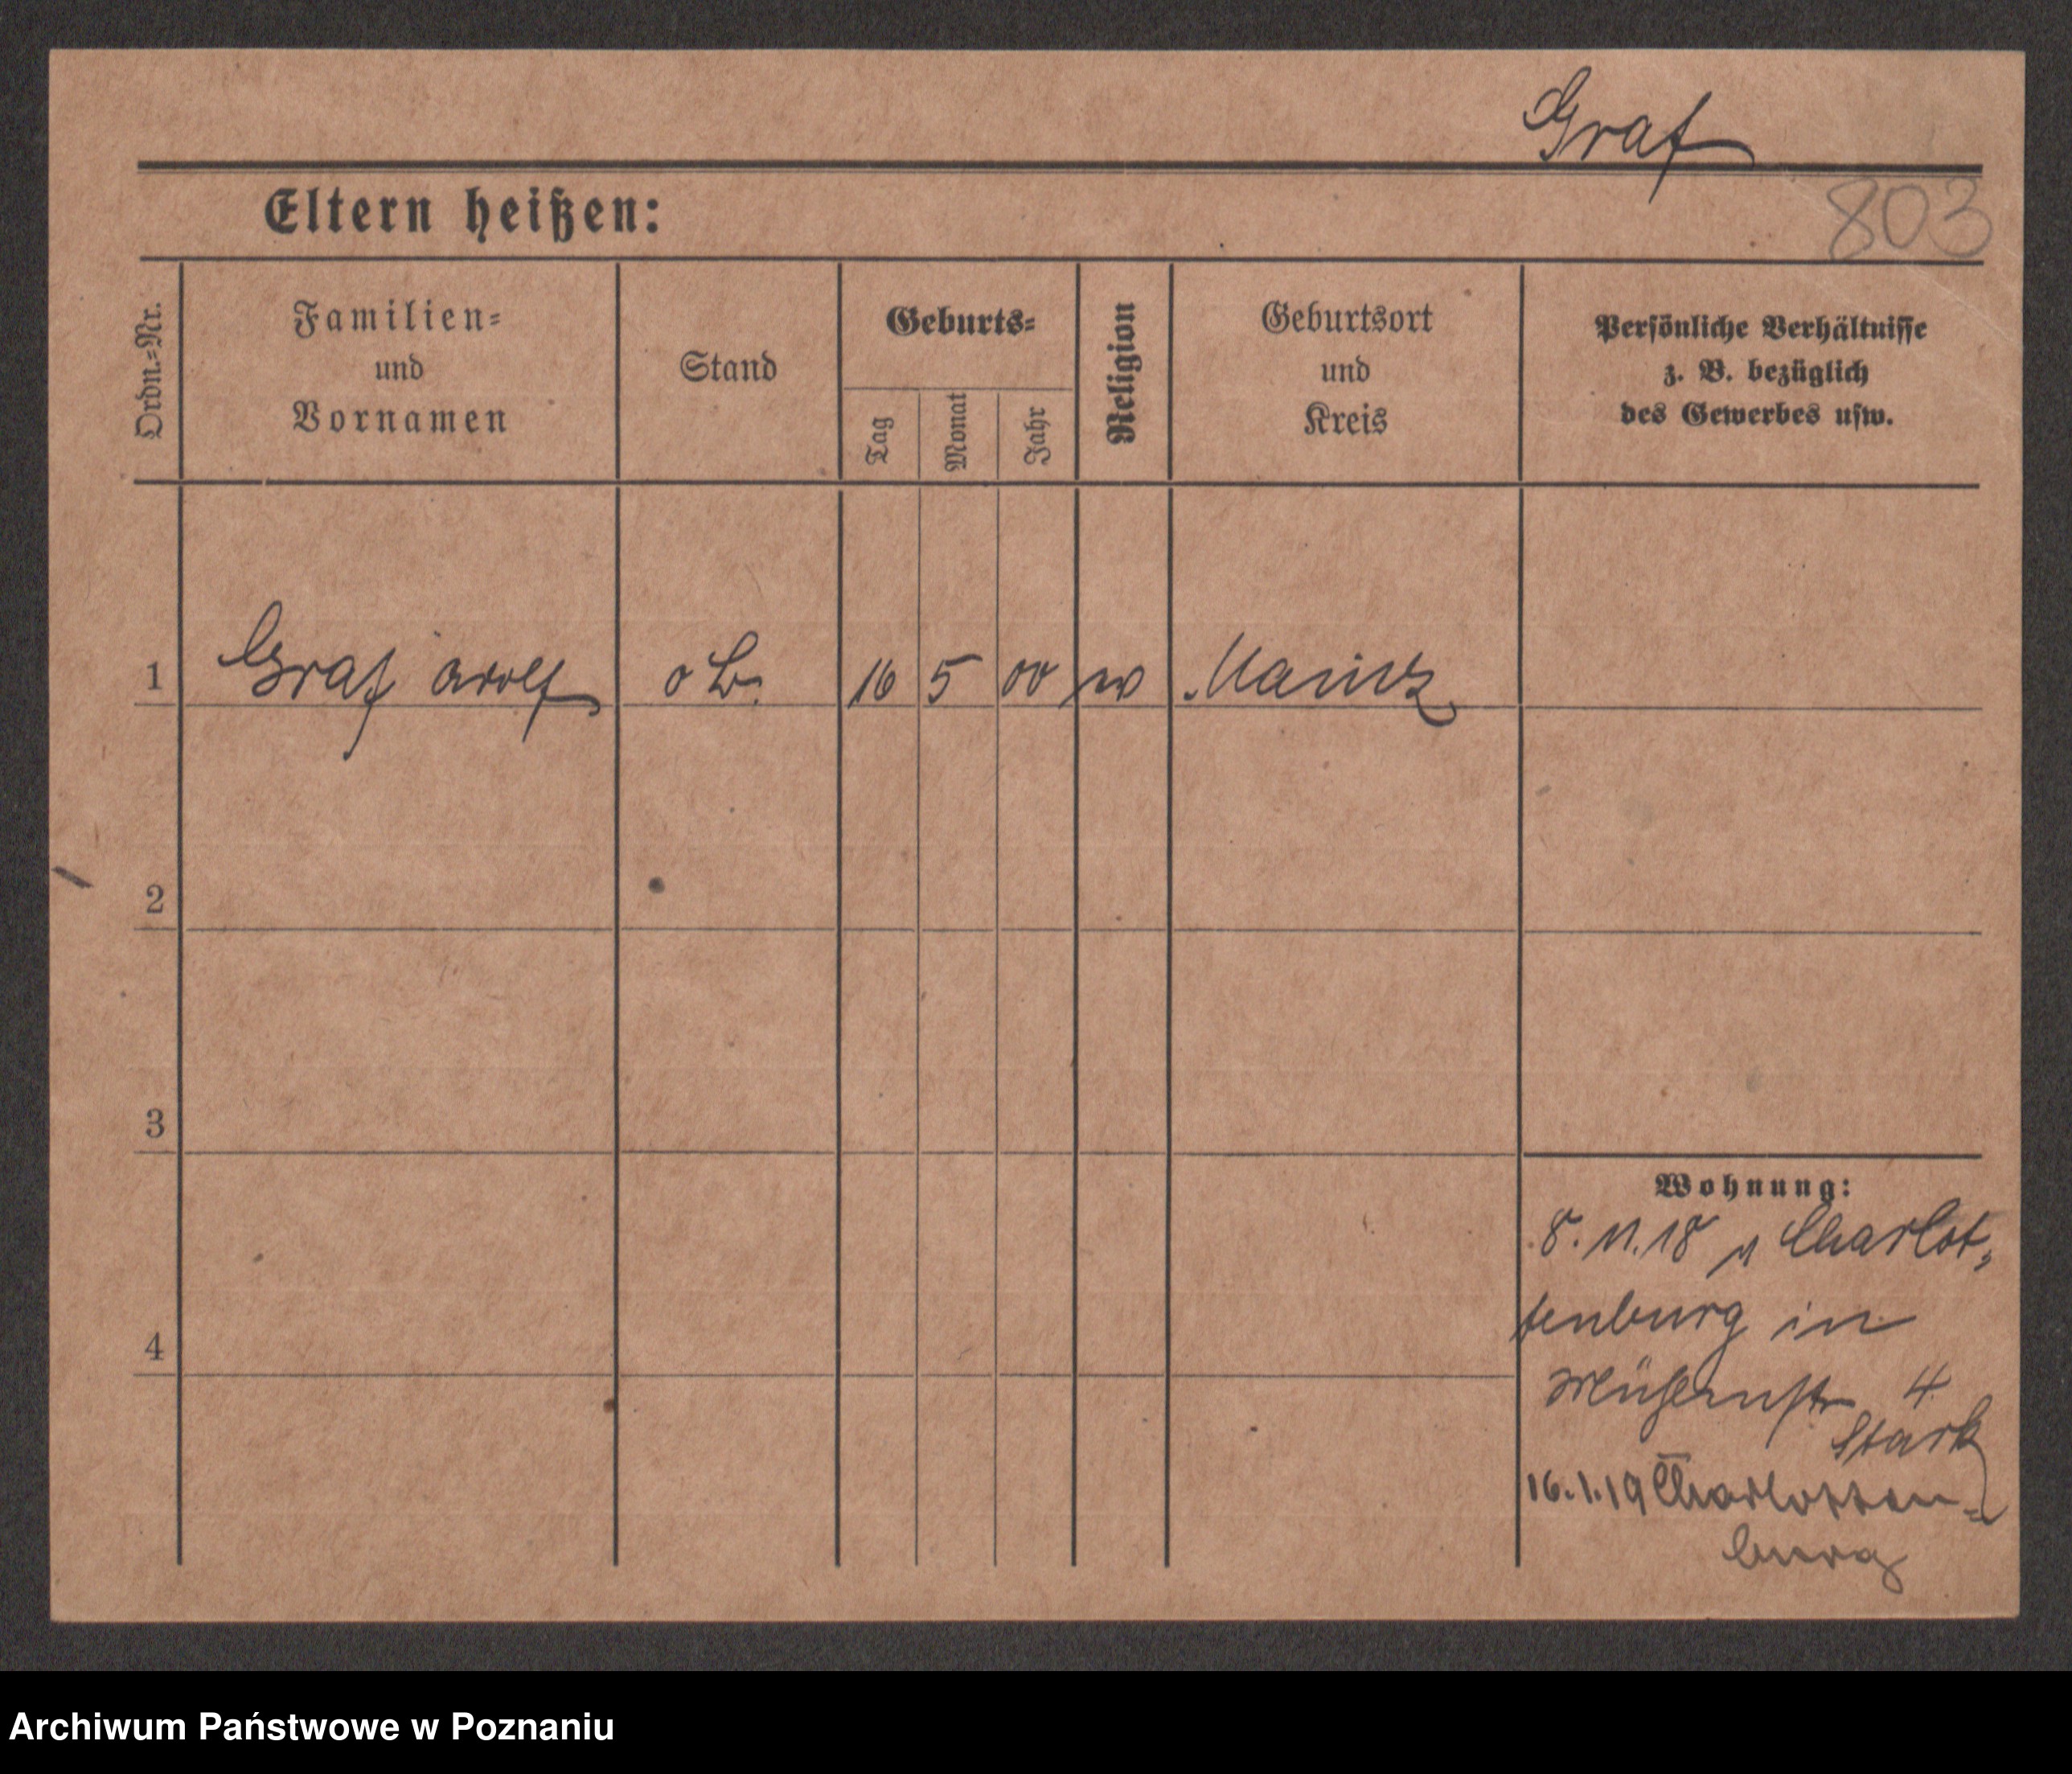 Graf
Eltern heißen:
803
Ordn.-Nr.
Familien-
und
Vornamen
Stand
Geburts-
Tag
Monat
Jahr
Religion
Geburtsort
und
Kreis
Persönliche Verhältnisse
z. B. bezüglich
des Gewerbes usw.
1 Graf Adolf 16 5 00 Mainz
2
3
4
Wohnung:
8. 11. 18 Charlot-
tenburg in
4
Stark
16.1.19 Charlotten-
burg
Archiwum Państwowe w Poznaniu